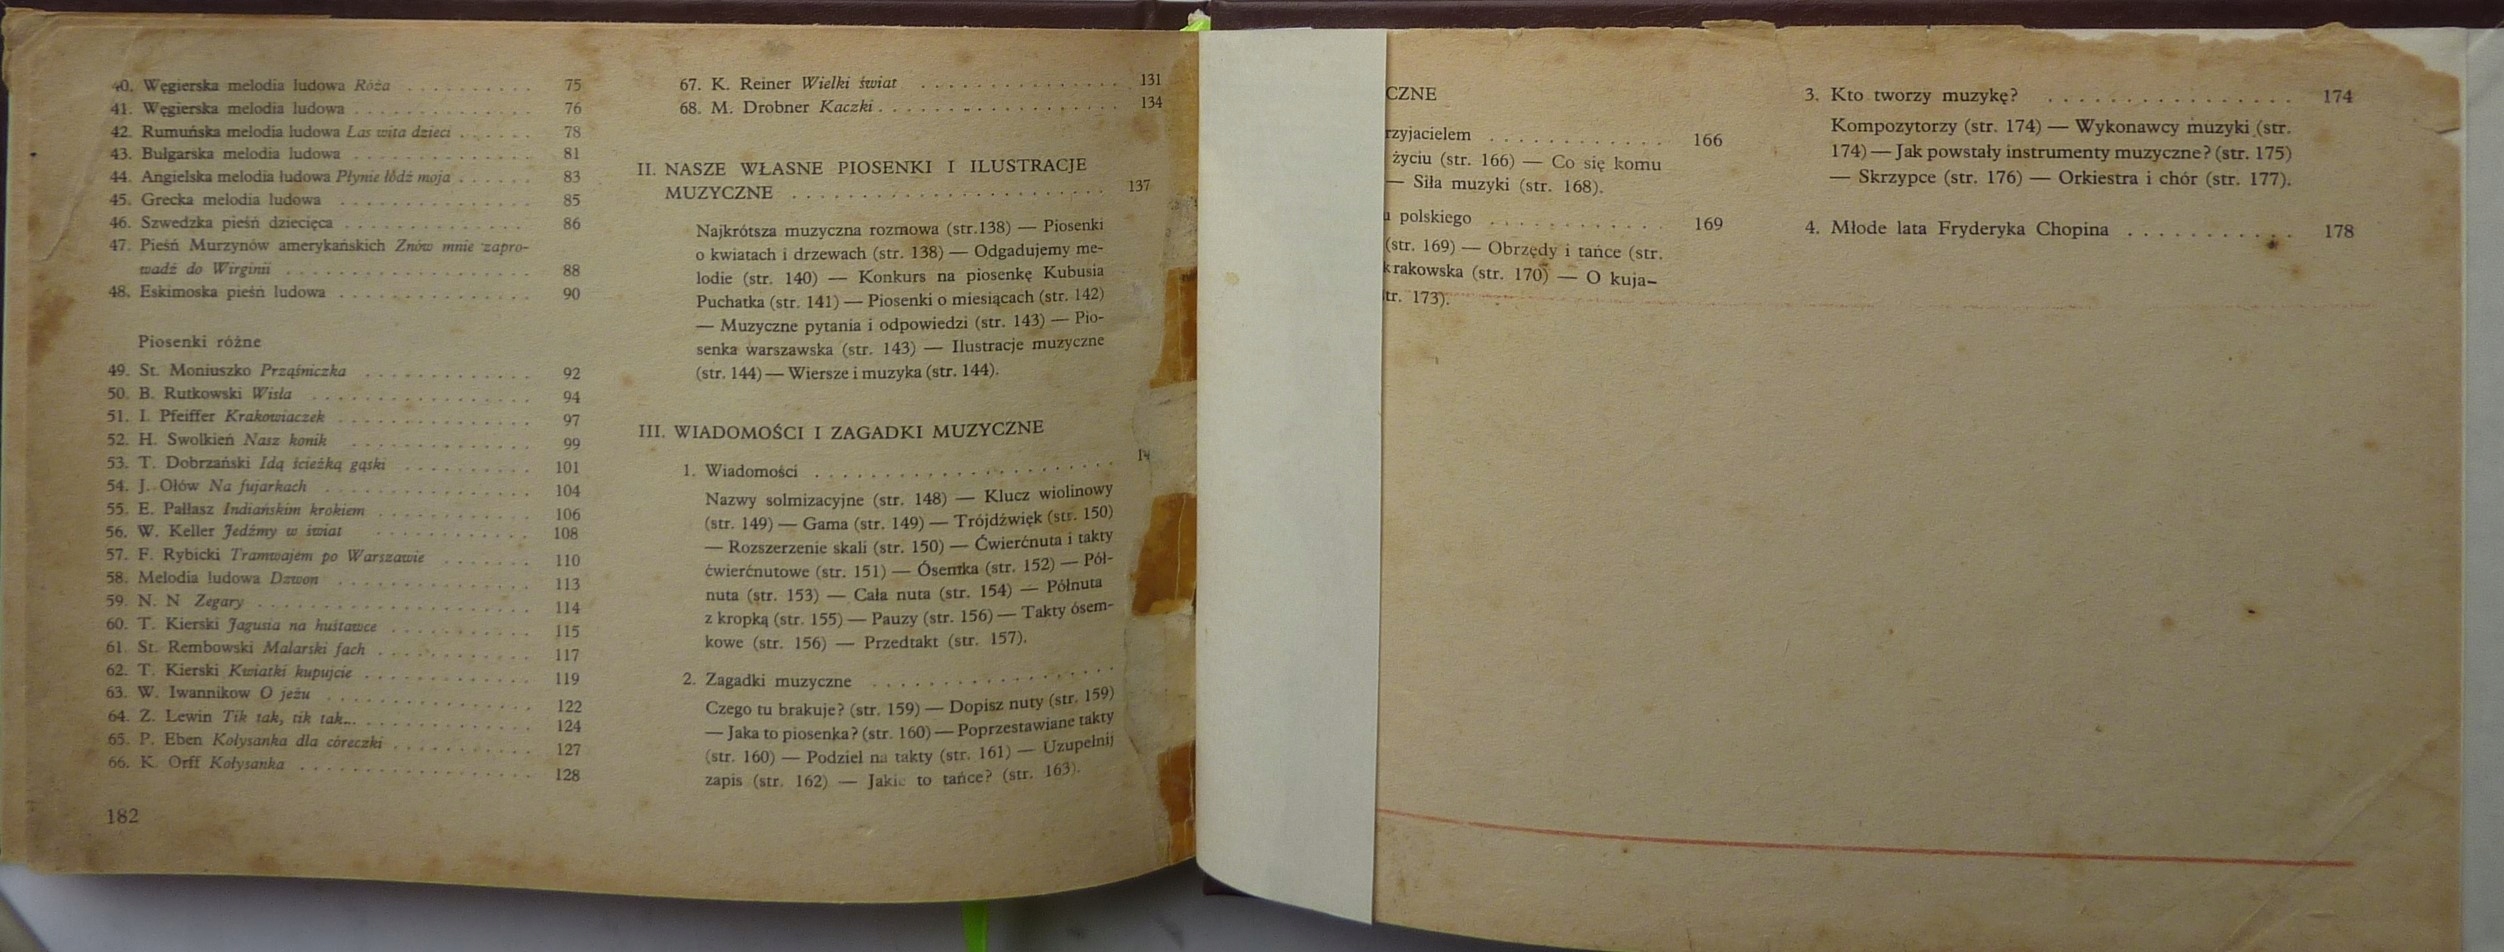 40. Węgierska melodia ludowa Róża . . . . . . . . . . 75
41. Węgierska melodia ludowa . . . . . . . . . . . . . . 76
42. Rumuńska melodia ludowa Las wita dzieci . . . . . . 78
43. Bułgarska melodia ludowa . . . . . . . . . . . . . . 81
44. Angielska melodia ludowa Płynie łódź moja . . . . . . 83
45. Grecka melodia ludowa . . . . . . . . . . . . . . . 85
46. Szwedzka pieśń dziecięca . . . . . . . . . . . . . . . 86
47. Pieśń Murzynów amerykańskich Znów mnie zapro-
wadź do Wirginii . . . . . . . . . . . . . . . . . . . 88
48. Eskimoska pieśń ludowa . . . . . . . . . . . . . . . . 90
Piosenki różne
49. St. Moniuszko Prząśniczka . . . . . . . . . . . . . 92
50. B. Rutkowski Wisła . . . . . . . . . . . . . . . . . 94
51. I. Pfeiffer Krakowiaczek . . . . . . . . . . . . . . . 97
52. H. Swolkień Nasz konik . . . . . . . . . . . . . . 99
53. T. Dobrzański Idą ścieżką gąski . . . . . . . . . . 101
54. J. Ołów Na fujarkach . . . . . . . . . . . . . . . . 104
55. E. Pałłasz Indiańskim krokiem . . . . . . . . . . . . 106
56. W. Keller Jedźmy w świat . . . . . . . . . . . . 108
57. F. Rybicki Tramwajem po Warszawie . . . . . . . 110
58. Melodia ludowa Dzwon . . . . . . . . . . . . . . . 113
59. N. N Zegary . . . . . . . . . . . . . . . . . . . . . 114
60. T. Kierski Jagusia na huśtawce . . . . . . . . . . . 115
61. St. Rembowski Malarski fach . . . . . . . . . . . . 117
62. T. Kierski Kwiatki kupujcie . . . . . . . . . . . . . 119
63. W. Iwannikow O jeżu . . . . . . . . . . . . . . . . 122
64. Z. Lewin Tik tak, tik tak... . . . . . . . . . . . . . 124
65. P. Eben Kołysanka dla córeczki . . . . . . . . . . . 127
66. K. Orff Kołysanka . . . . . . . . . . . . . . . . . . 128
182
67. K. Reiner Wielki świat . . . . . . . . . . . . . . . 131
68. M. Drobner Kaczki . . . . . . . . . . . . . . . . . . 134
II. NASZE WŁASNE PIOSENKI I ILUSTRACJE
MUZYCZNE . . . . . . . . . . . . . . . . . . . . . . 137
Najkrótsza muzyczna rozmowa (str.138) — Piosenki
o kwiatach i drzewach (str. 138) — Odgadujemy me-
lodie (str. 140) — Konkurs na piosenkę Kubusia
Puchatka (str. 141) — Piosenki o miesiącach (str. 142)
— Muzyczne pytania i odpowiedzi (str. 143) — Pio-
senka warszawska (str. 143) — Ilustracje muzyczne
(str. 144) — Wiersze i muzyka (str. 144).
III. WIADOMOŚCI I ZAGADKI MUZYCZNE
1. Wiadomości . . . . . . . . . . . . . . . . . . . . . 14
Nazwy solmizacyjne (str. 148) — Klucz wiolinowy
(str. 149) — Gama (str. 149) — Trójdźwięk (str. 150)
— Rozszerzenie skali (str. 150) — Ćwierćnuta i takty
ćwierćnutowe (str. 151) — Ósemka (str. 152) — Pół-
nuta (str. 153) — Cała nuta (str. 154) — Półnuta
z kropką (str. 155) — Pauzy (str. 156) — Takty ósem-
kowe (str. 156) — Przedtakt (str. 157).
2. Zagadki muzyczne . . . . . . . . . . . . . . . . . .
Czego tu brakuje? (str. 159) — Dopisz nuty (str. 159)
— Jaka to piosenka? (str. 160) — Poprzestawiane takty
(str. 160) — Podziel na takty (str. 161) — Uzupełnij
zapis (str. 162) — Jakie to tańce? (str. 163).
CZNE
rzyjacielem . . . . . . . . . . . . . 166
życiu (str. 166) — Co się komu
— Siła muzyki (str. 168).
u polskiego . . . . . . . . . . . . . 169
(str. 169) — Obrzędy i tańce (str.
krakowska (str. 170) — O kuja-
tr. 173).
3. Kto tworzy muzykę? . . . . . . . . . . . . . . . . 174
Kompozytorzy (str. 174) — Wykonawcy muzyki (str.
174) — Jak powstały instrumenty muzyczne? (str. 175)
— Skrzypce (str. 176) — Orkiestra i chór (str. 177).
4. Młode lata Fryderyka Chopina . . . . . . . . . . . 178